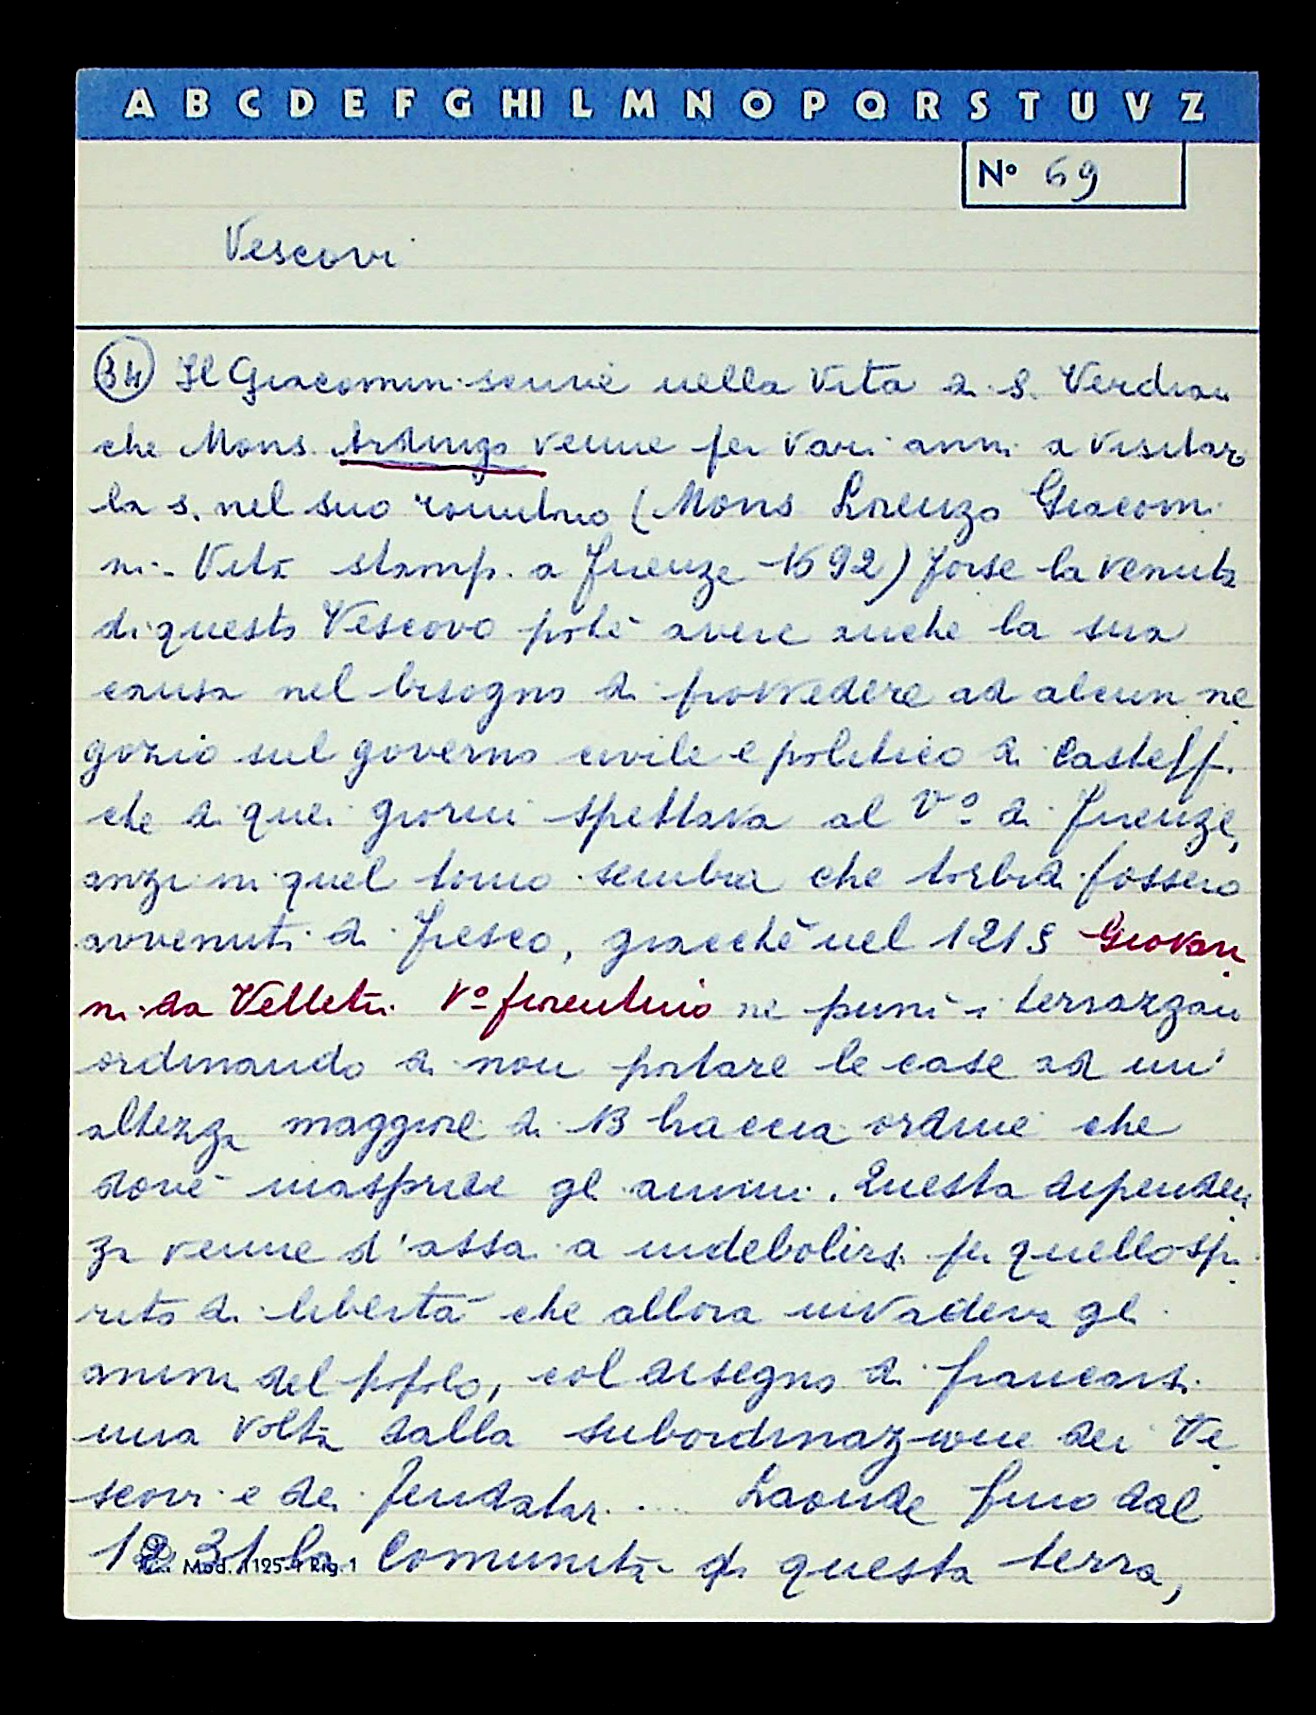 A B C D E F G HI L M N O P Q R S T U V Z
N° 69
Vescovi
34 Il Giacomini scrive nella Vita di S. Verdian
che Mons Ardingo venne per vari anni a visitar
la s. nel suo romitorio (Mons Lorenzo Giacomi
ni - Vita stamp. a Firenze 1692) Forse la venuta
di questo Vescovo potè avere anche la sua
causa nel bisogno di provvedere ad alcun ne
gozio sul governo civile e politico di Castelf.
che di quei giorni spettava al V° di Firenze,
anzi in quel torno sembra che torbidi fossero
avvenuti di fresco, giacchè nel 1215 Giovan
ni da Velletri V° fiorentino ne punì i terrazzan
ordinando di non portare le case ad un'
altezza maggiore di 13 braccia ordine che
dovè inasprire gli animi. Questa dipenden
za venne d'assai a indebolirsi per quello spi
rito di libertà che allora invadeva gli
animi del popolo, col disegno di francarsi
una volta dalla subordinazione dei Ve
scovi e dei feudatari .... Laonde fino dal
1231 la Comunità di questa terra,
Mod. 1125-1 Rig. 1